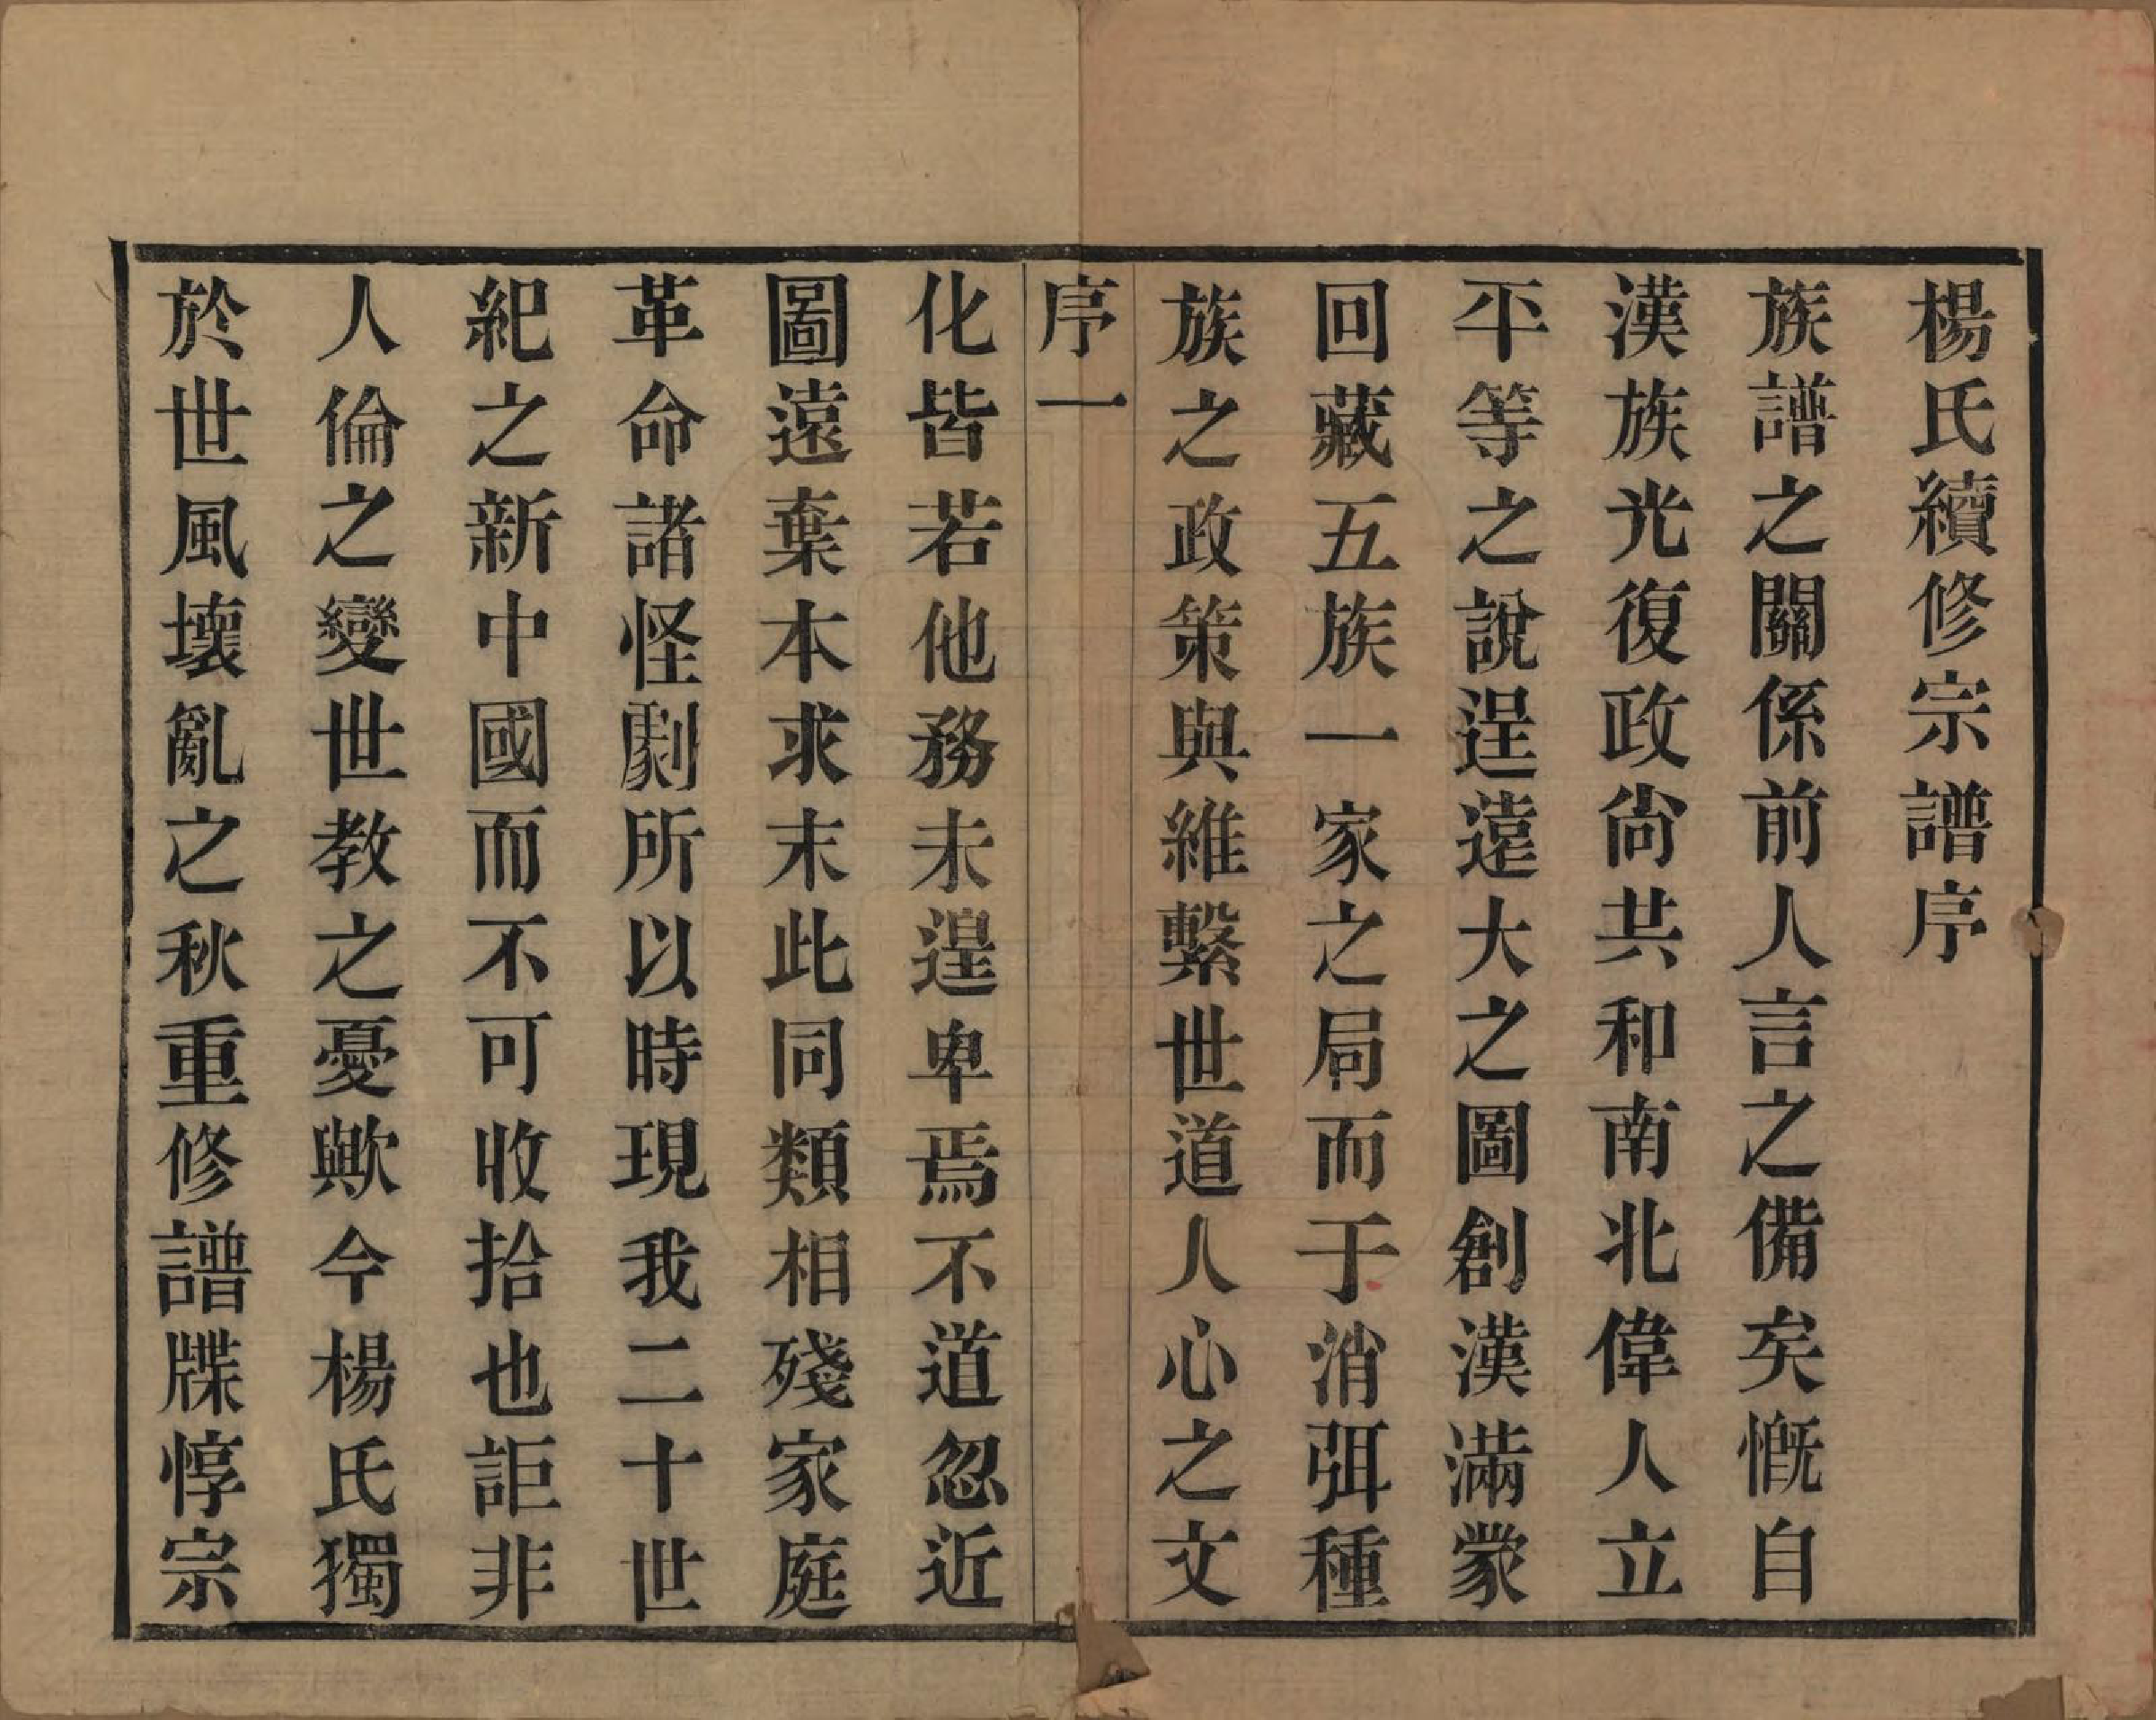 楊氏續修宗譜序
族譜之關係前人言之備矣慨自
漢族光復政尙共和南北偉人立
平等之說逞遠大之圖創漢滿蒙
回藏五族一家之局而于消弭種
族之政策與維繫世道人心之文
序一
化皆若他務未遑卑焉不道忽近
圖遠棄本求末此同類相殘家庭
革命諸怪劇所以時現我二十世
紀之新中國而不可收拾也詎非
人倫之變世教之憂歟今楊氏獨
於世風壞亂之秋重修譜牒惇宗